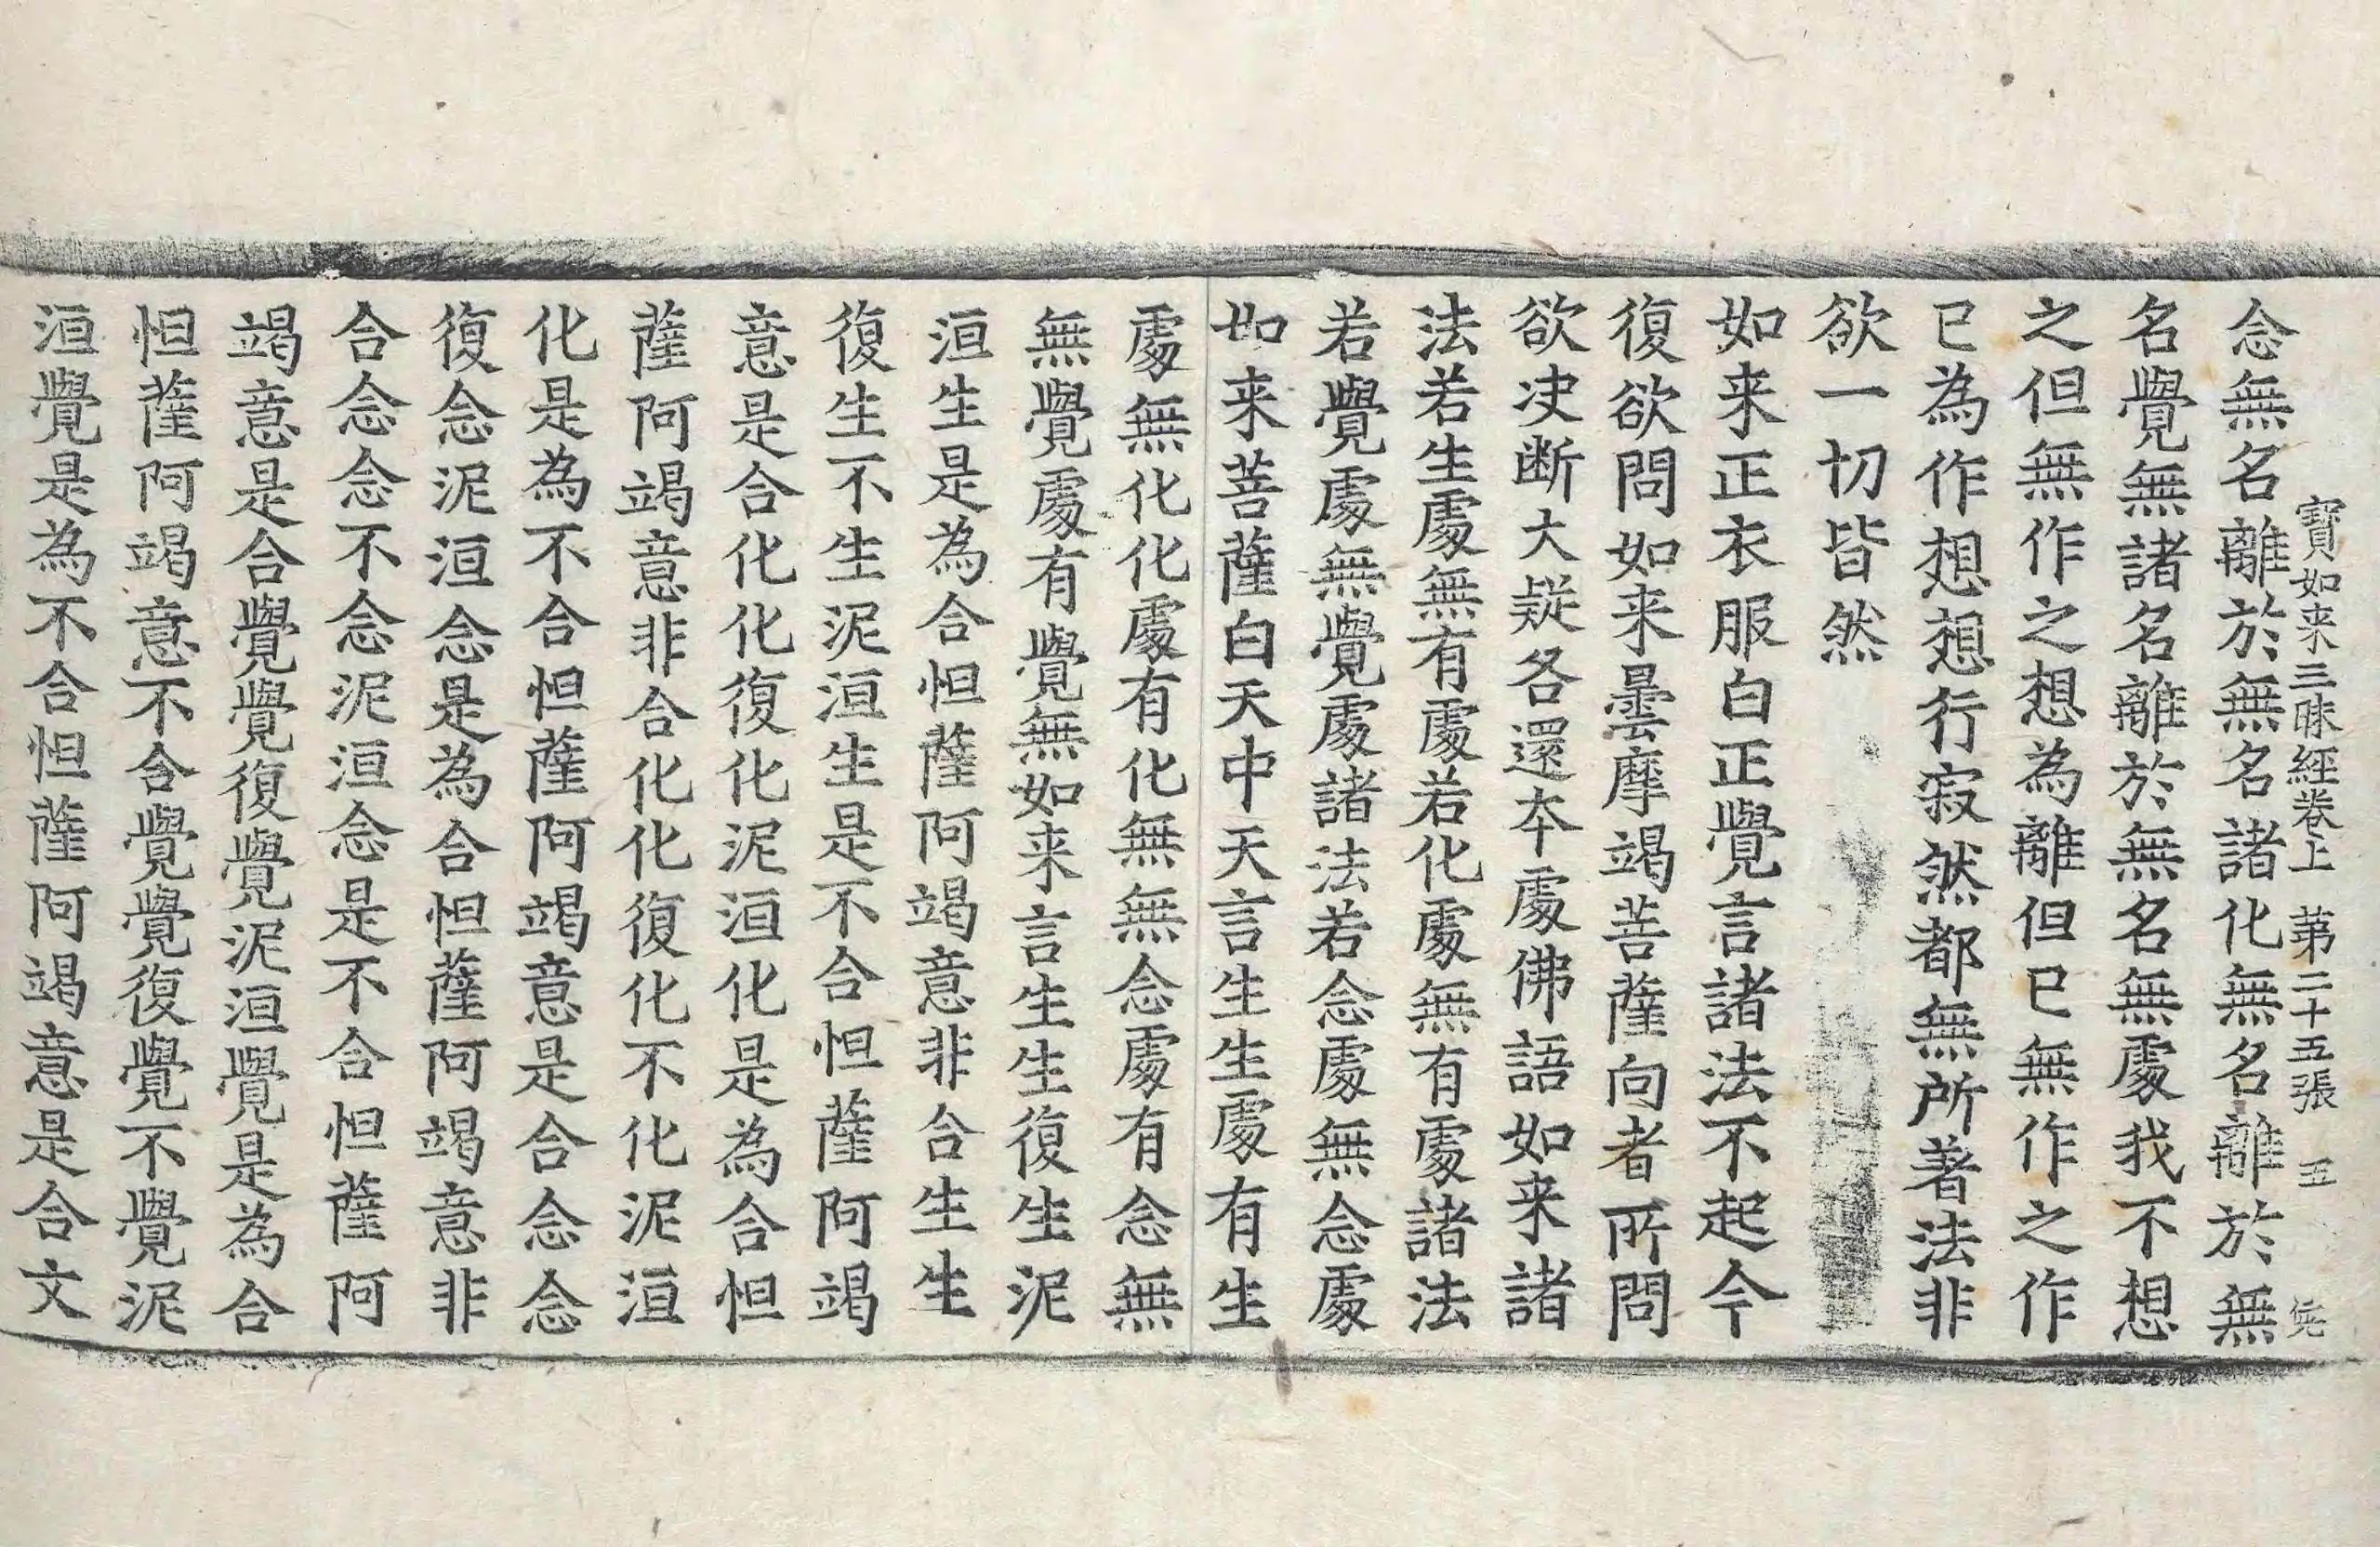 寶如来三昧經卷上　第二十五張　五
念無名離於無名諸化無名離於無
名覺無諸名離於無名無處我不想
之但無作之想為離但已無作之作
已為作想想行寂然都無所著法非
欲一切皆然
如来正衣服白正覺言諸法不起今
復欲問如来曇摩竭菩薩向者所問
欲决断大疑各還夲處佛語如来諸
法若生處無有處若化處無有處諸法
若覺處無覺處諸法若念處無念處
如来菩薩白天中天言生生處有生
處無化化處有化無無念處有念無
無覺處有覺無如来言生生復生泥
洹生是為合怛薩阿竭意非合生生
復生不生泥洹生是不合怛薩阿竭
意是合化化復化泥洹化是為合怛
薩阿竭意非合化化復化不化泥洹
化是為不合怛薩阿竭意是合念念
復念泥洹念是為合怛薩阿竭意非
合念念不念泥洹念是不合怛薩阿
竭意是合覺覺復覺泥洹覺是為合
怛薩阿竭意不合覺覺復覺不覺泥
洹覺是為不合怛薩阿竭意是合文